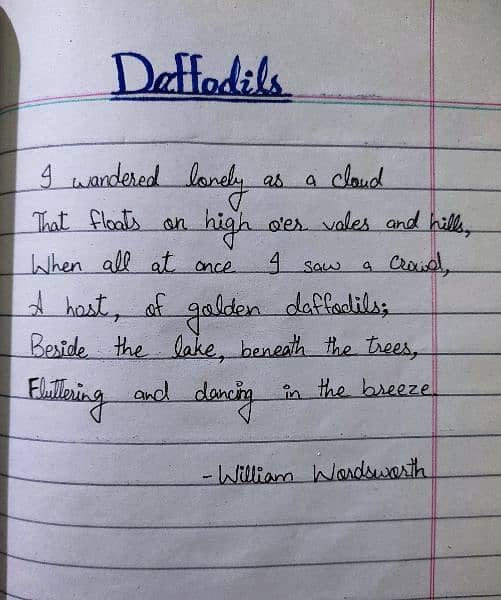 Daffodils
I wandered lonely as a cloud
That floats on high o'er vales and hills,
When all at once I saw a crowd,
A host, of golden daffodils;
Beside the lake, beneath the trees,
Fluttering and dancing in the breeze.
- William Wordsworth